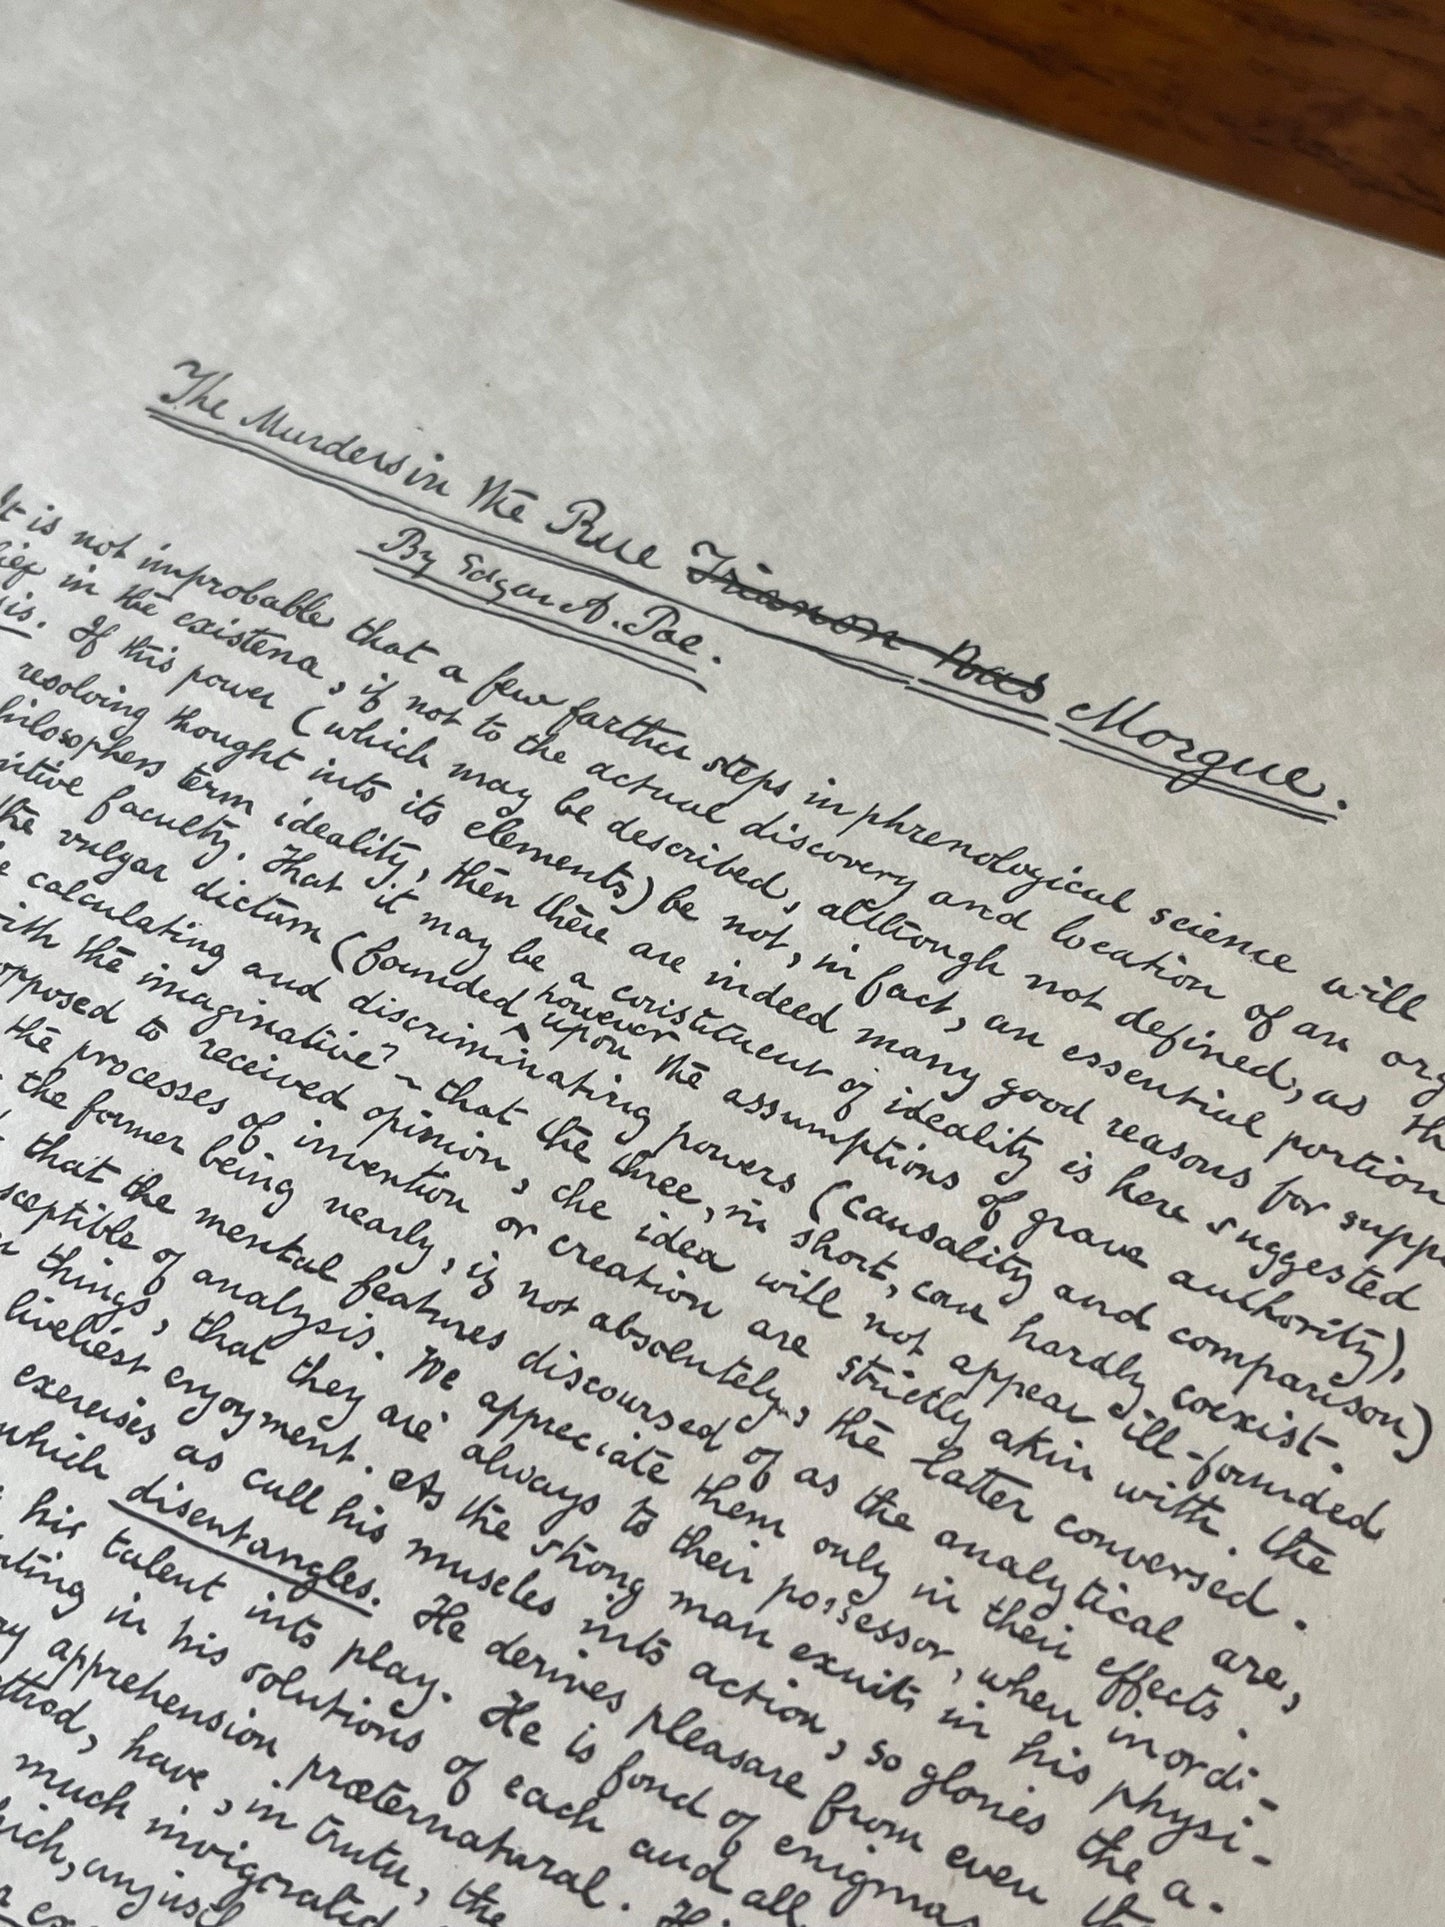 The Murders in the Rue Trianon Bas Morgue.
By Edgar A. Poe.
It is not improbable that a few farther steps in phrenological science will
lief in the existence, if not to the actual discovery and location of an org
sis. If this power (which may be described, although not defined, as th
resolving thought into its elements) be not, in fact, an essential portion
hilosophers term ideality, then there are indeed many good reasons for supp
itive faculty. That it may be a constituent of ideality is here suggested
the vulgar dictum (founded however upon the assumptions of grave authority),
calculating and discriminating powers (causality and comparison)
with the imaginative — that the three, in short, can hardly coexist.
opposed to received opinion, the idea will not appear ill-founded
the processes of invention or creation are strictly akin with. the
the former being nearly, if not absolutely, the latter conversed.
that the mental features discoursed of as the analytical are,
sceptible of analysis. We appreciate them only in their effects.
things, that they are always to their possessor, when inordi-
liveliest enjoyment. As the strong man exults in his physi-
exercises as call his muscles into action, so glories the a-
which disentangles. He derives pleasure from even th
his talent into play. He is fond of enigmas
ting in his solutions of each and all
ry apprehension præternatural. Hi
thod, have, in truth, the
much invigorated
hich, unjustl